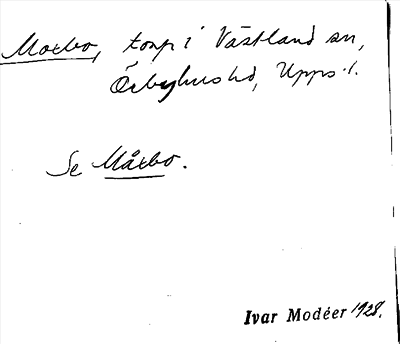 Moxbo, torp i Västland sn,
Örbyhus hd, Upps. l.
Se Måxbo.
Ivar Modéer 1928.